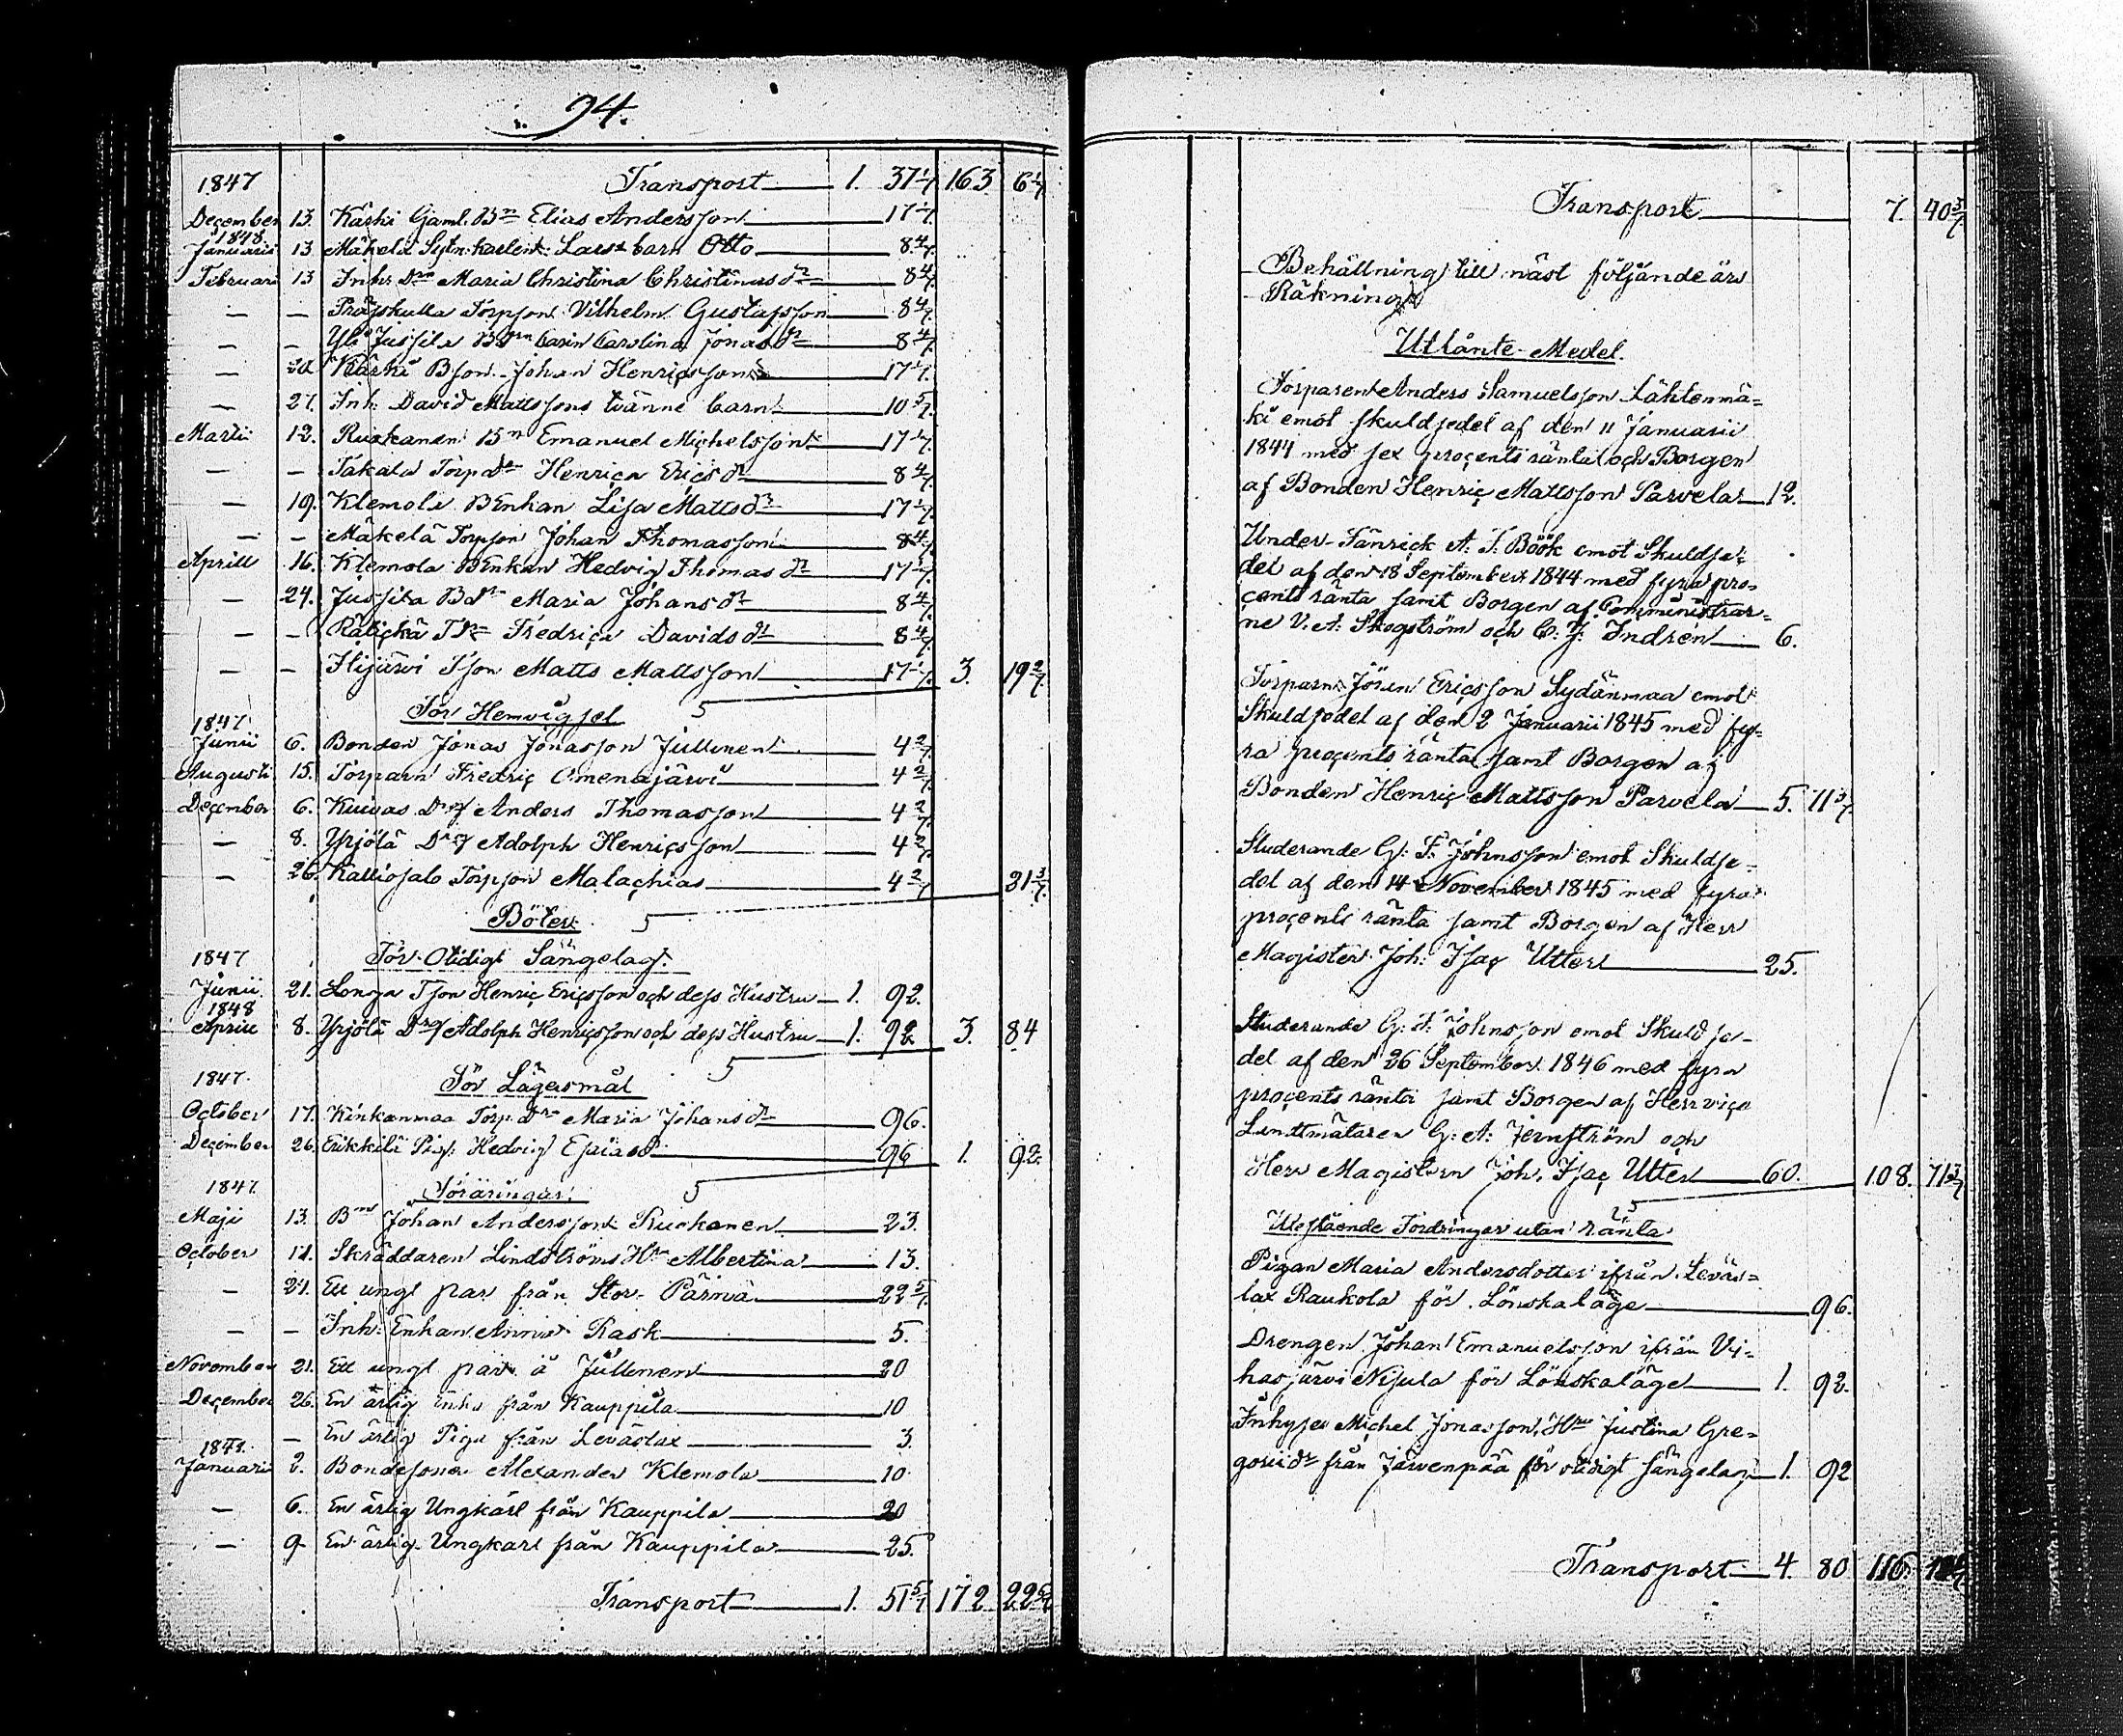 94.
1847 Transport 1. 37 1/7 163 6 1/7
December 13. Kärki Gaml. Bn Elias Andersson 17 1/7
1848
Januarii 13 Mäkelä Lars barn Otto 8 4/7
Februari 13 Inh: Dn Maria Christina Christinasdr 8 4/7
— — Torpson Vilhelm Gustafsson 8 4/7
— — Yli Jussila Carin Carolina Jonasdr 8 4/7
— 20 Kärki Bson Johan Henricsson 17 1/7
— 27. Inh: David Mattssons tvänne barn 10 5/7
Martii 12. Ruokanen Bn Emanuel Michelsson 17 1/7
— — Takala Torp.dr Henrica Ericsdr 8 4/7
— 19. Klemola BEnkan Lisa Mattsdr 17 1/7
— — Mäkelä Torpson Johan Thomasson 8 4/7
Aprill 16. Klemola BEnkan Hedvig Thomasdr 17 1/7
— 24. Jussila Bdr Maria Johansdr 8 4/7
— — Fredrica Davidsdr 8 4/7
— — Ilijärvi Tson Matts Mattsson 17 1/7 3. 19 2/7
För Hemvigsel 5
1847
Junii 6. Bonden Jonas Jonasson Jullinen 4 2/7
Augusti 15. Torparn Fredric Omenajärvi 4 2/7
December 6. Kuivas Drg Anders Thomasson 4 2/7
— 8. Yrjölä Drg Adolph Henricsson 4 2/7
— 26. Kalliosalo Torpson Malachias 4 2/7 21 3/7
Böter 5
1847 För Otidigt Sängelag.
Junii 21. Longa Tson Henric Ericsson och dess Hustru 1. 92.
1848
Aprill 8. Yrjölä Drg Adolph Henricsson och dess Hustru 1. 92 3. 84
1847. För Lägersmål 5
October 17. Kinkanmaa Torp.dr Maria Johansdr 96.
December 26. Erikkilä Pig. Hedvig Esaiasd 96 1. 92.
1847. Föräringar. 5
Maji 13. Bn Johan Andersson Ruokanen 23.
October 14. Skräddaren Lindströms Hu Albertina 13.
— 24. Ett ungt par från Stor-Pärnä 22 5/7
— — Inh: Enkan Anna Rask 5.
November 21. Ett ungt par å Jullinen 20
December 26. En ärlig Enka från Kauppila 10
— En ärlig Piga från Leväslax 3.
1848.
Januarii 2. Bondesonen Alexander Klemola 10
— 6. En ärlig Ungkarl från Kauppila 20
— 9 En ärlig Ungkarl från Kauppila 25.
Transport 1. 51 5/7 172 22 6/7
Transport 7. 40 5/7
Behållning till näst följande års
Räkning
Utlånte Medel.
Torparen Anders Samuelsson Lähtenmä-
ki emot skuldsedel af den 11 Januarii
1844 med sex procents ränta och Borgen
af Bonden Henric Mattsson Parvela 12.
Under-Fänrick A: F: Böök emot Skuldse-
del af den 18 September 1844 med fyra pro-
cents ränta samt Borgen af Comministrar-
ne V: A: Skogström och C: J: Indrén 6.
Torparn Jöran Ericsson Sydänmaa emot
Skuldsedel af den 2 Januarii 1845 med fy-
ra procents ränta samt Borgen af
Bonden Henric Mattsson Parvela 5. 71 3/7
Studerande G: F: Johnsson emot Skuldse-
del af den 14 November 1845 med fyra
procents ränta samt Borgen af Herr
Magister Joh: Isac Utter 25.
Studerande G: F: Johnsson emot Skuldse-
del af den 26 September 1846 med fyra
procents ränta samt Borgen af Herr vice
Landtmätaren G: A: Jernström och
Herr Magistern Joh. Isac Utter 60. 108. 71 3/7
Utestående Fordringar utan ränta 5
Pigan Maria Andersdotter ifrån Leväs-
lax Raukola för Lönskaläge 96.
Drengen Johan Emanuelsson ifrån Vi-
hasjärvi Nisula för Lönskaläge 1. 92.
Inhyses Michel Jonasson, Hu Justina Gre-
goriidr från Järvenpää för otidigt sängelag 1. 92
Transport 4. 80 116.